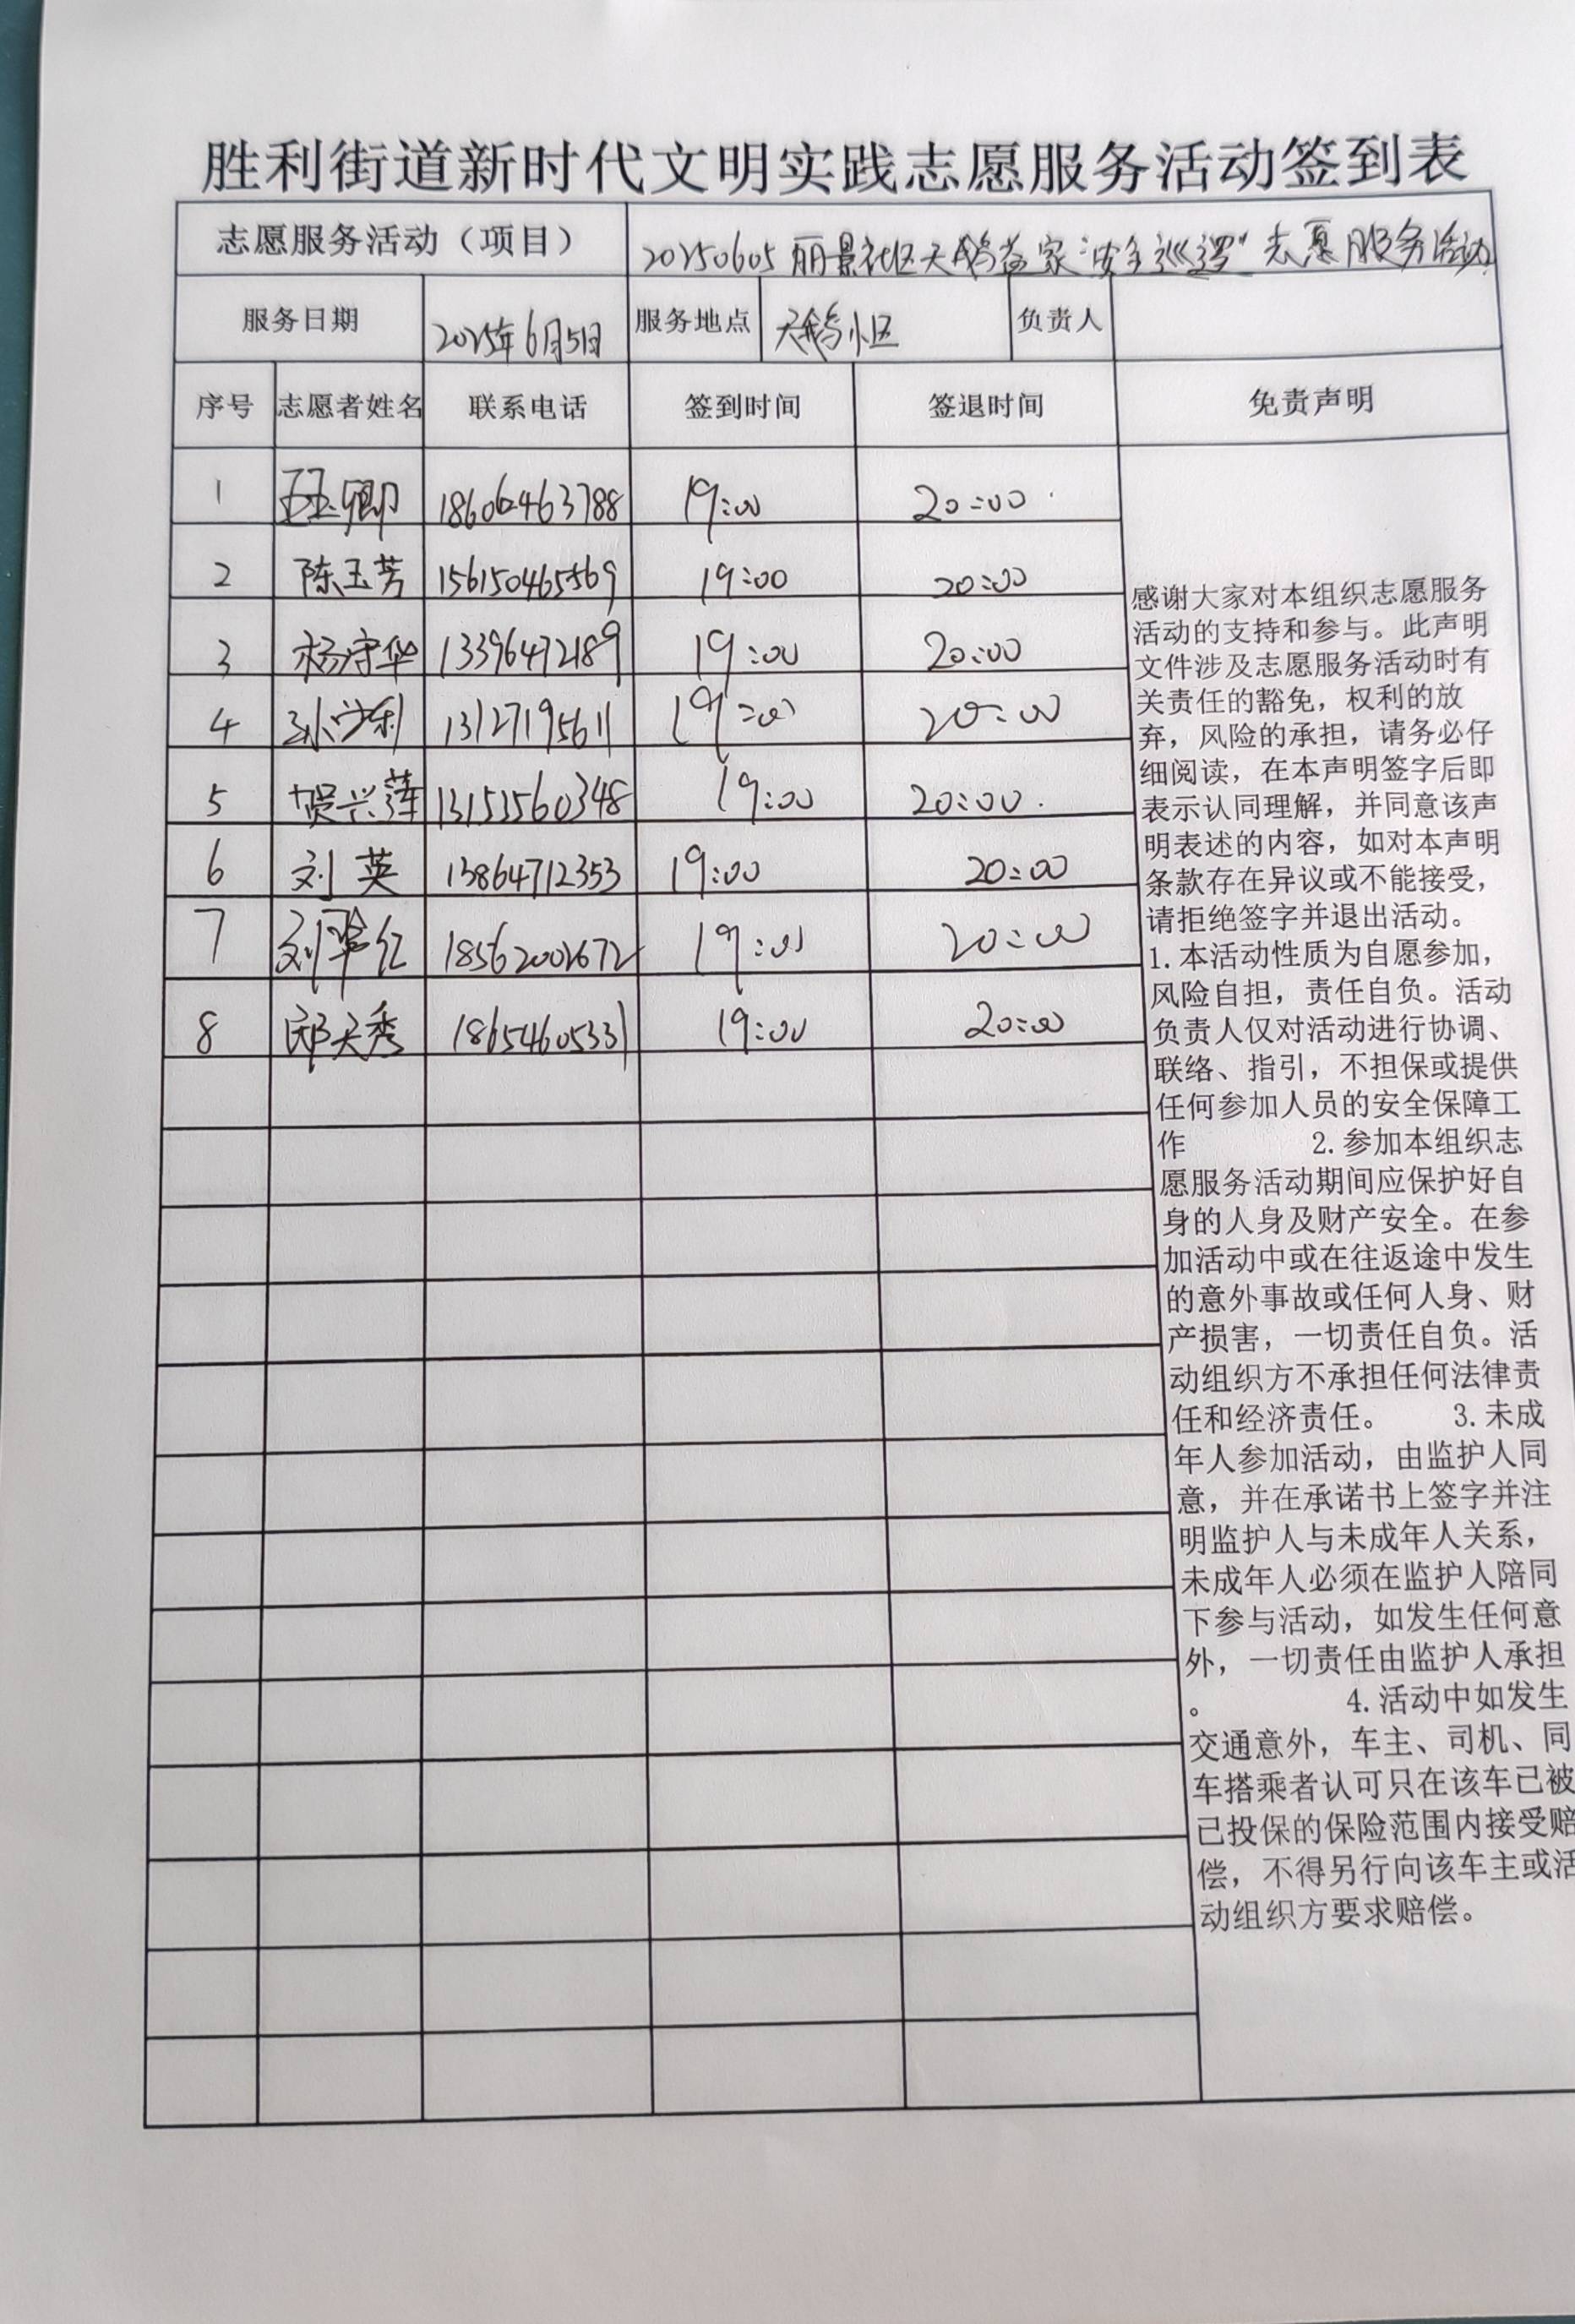 胜利街道新时代文明实践志愿服务活动签到表
志愿服务活动（项目） 20250605丽景社区天鹅益家“安全巡逻”志愿服务活动
服务日期 2025年6月5日 服务地点 天鹅小区 负责人
序号 志愿者姓名 联系电话 签到时间 签退时间 免责声明
1 王玉卿 18606463788 19:00 20:00
2 陈玉芳 156150465569 19:00 20:00
3 杨守华 13396472189 19:00 20:00
4 13127195611 19:00 20:00
5 贺兴莲 13153560348 19:00 20:00
6 刘英 13864712353 19:00 20:00
7 刘翠红 18562002672 19:00 20:00
8 邱天秀 18654605331 19:00 20:00
感谢大家对本组织志愿服务
活动的支持和参与。此声明
文件涉及志愿服务活动时有
关责任的豁免，权利的放
弃，风险的承担，请务必仔
细阅读，在本声明签字后即
表示认同理解，并同意该声
明表述的内容，如对本声明
条款存在异议或不能接受，
请拒绝签字并退出活动。
1.本活动性质为自愿参加，
风险自担，责任自负。活动
负责人仅对活动进行协调、
联络、指引，不担保或提供
任何参加人员的安全保障工
作 2.参加本组织志
愿服务活动期间应保护好自
身的人身及财产安全。在参
加活动中或在往返途中发生
的意外事故或任何人身、财
产损害，一切责任自负。活
动组织方不承担任何法律责
任和经济责任。 3.未成
年人参加活动，由监护人同
意，并在承诺书上签字并注
明监护人与未成年人关系，
未成年人必须在监护人陪同
下参与活动，如发生任何意
外，一切责任由监护人承担
。 4.活动中如发生
交通意外，车主、司机、同
车搭乘者认可只在该车已被
已投保的保险范围内接受赔
偿，不得另行向该车主或活
动组织方要求赔偿。